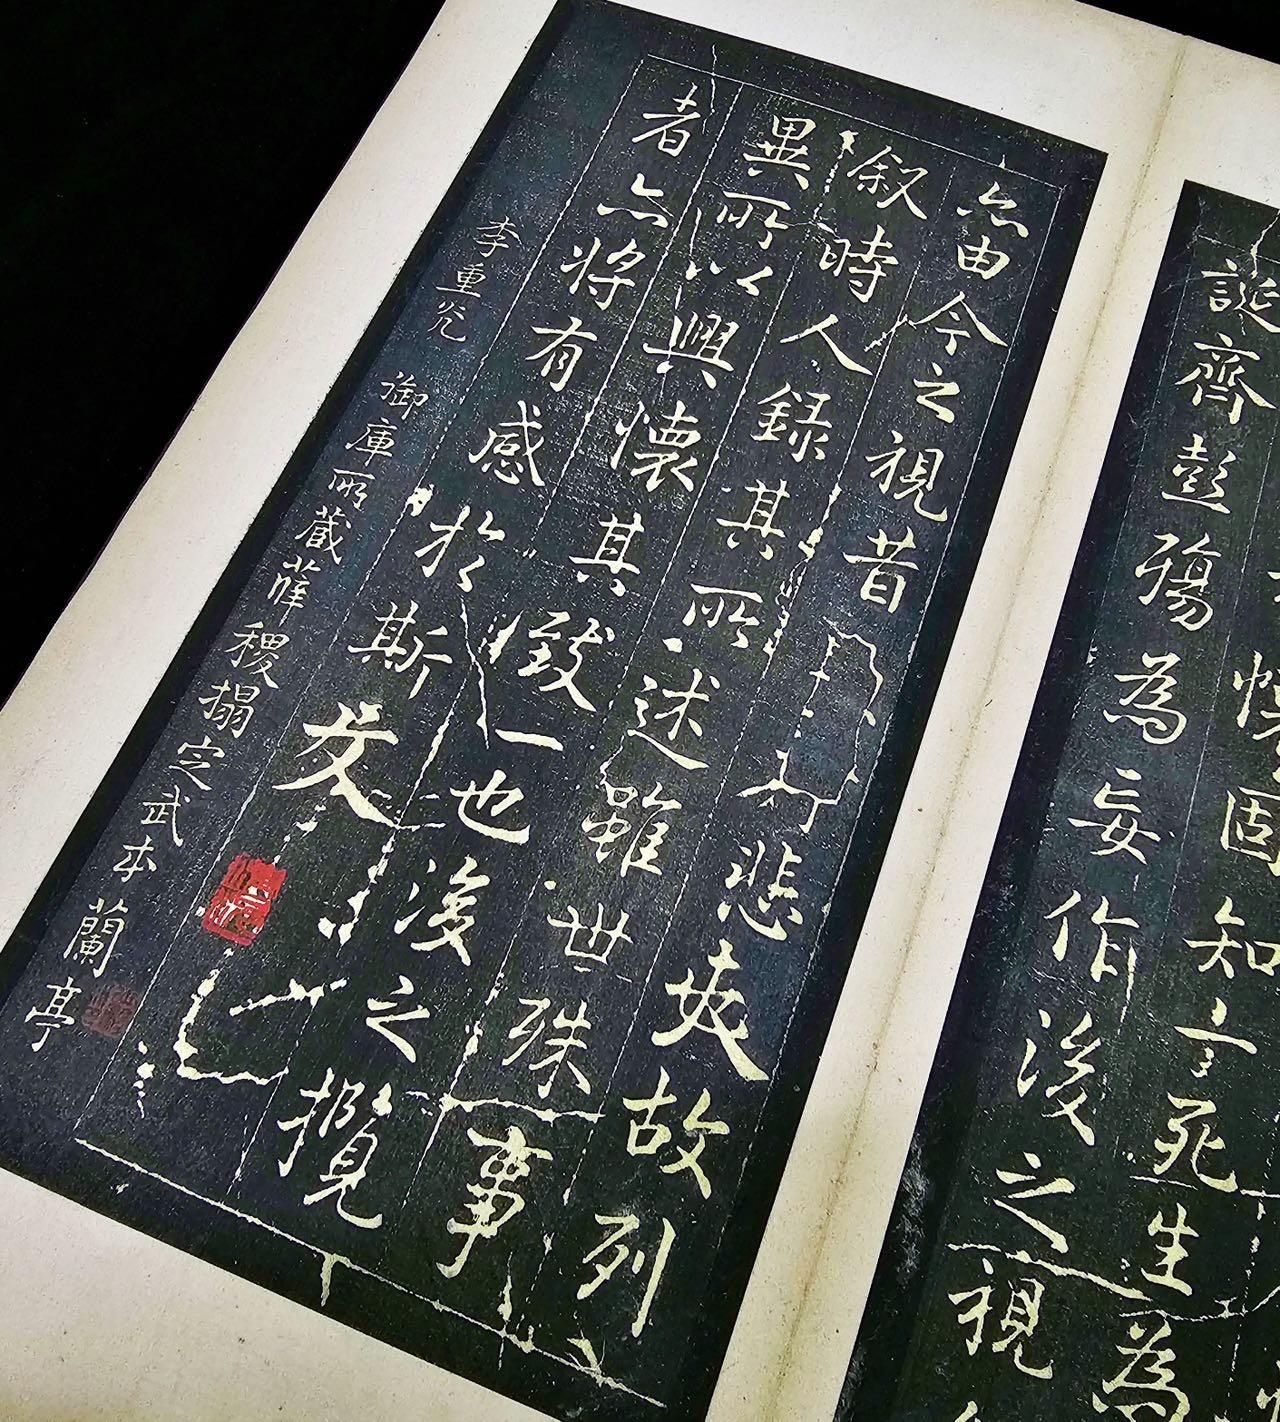 懷固知一死生為
誕齊彭殤為妄作後之視
亦由今之視昔悲夫故列
叙時人録其所述雖世殊事
異所以興懷其致一也後之攬
者亦將有感於斯文
李重光
御庫所藏薛稷搨定武本蘭亭